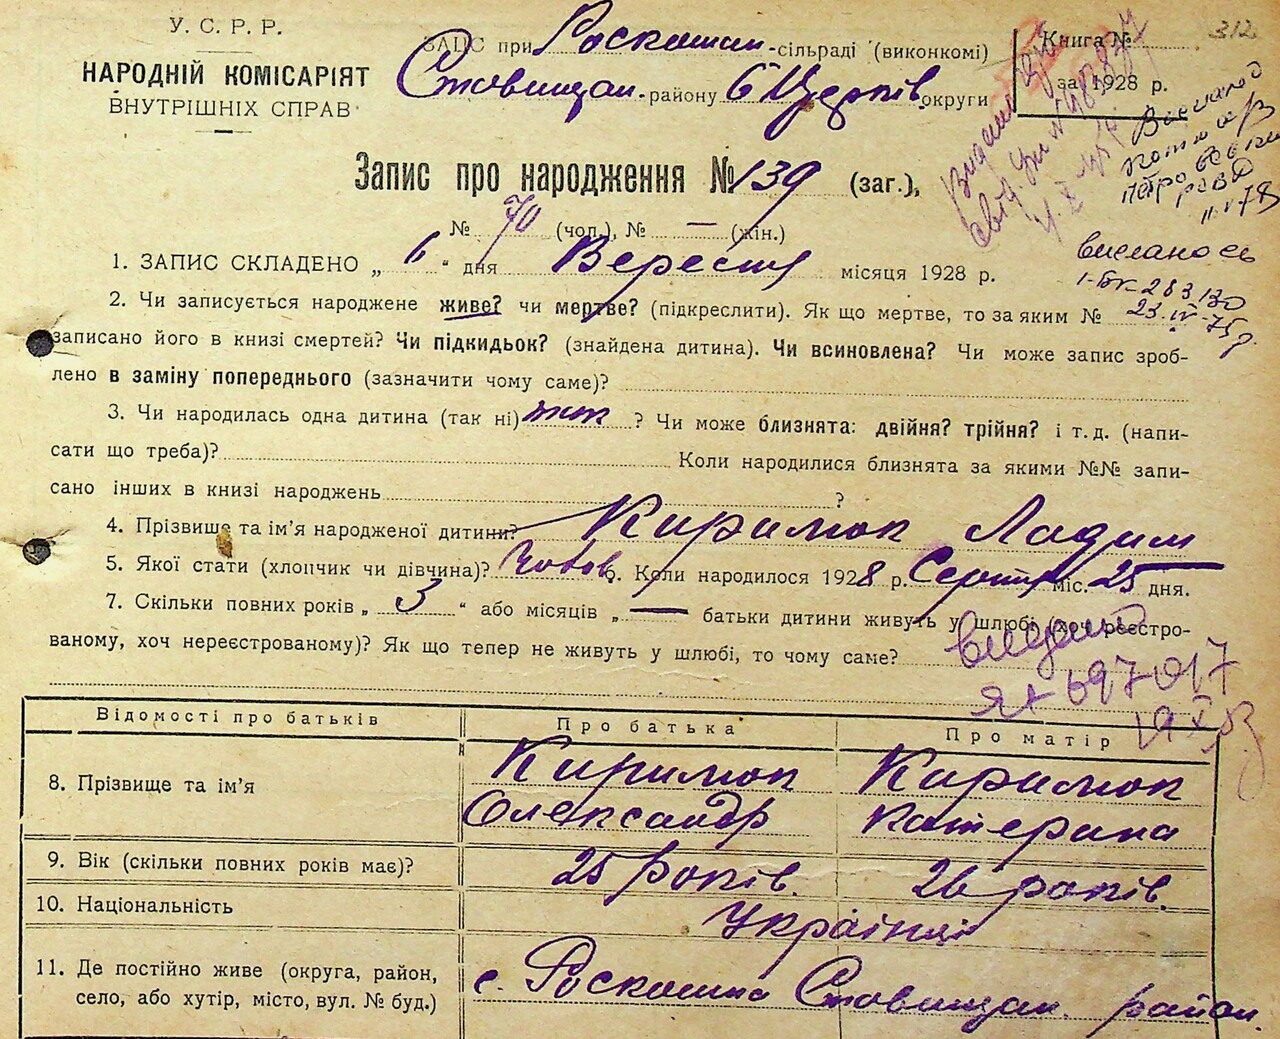 У. С. Р. Р.
НАРОДНІЙ КОМІСАРІЯТ
ВНУТРІШНІХ СПРАВ
312
ЗАПИС при Роскошан.-сільраді (виконкомі)
Ставищан.-району Б Церків. округи
Книга №
за 1928 р.
Запис про народження № 139 (заг.),
№ 70 (чол.), № — (жін.)
1. ЗАПИС СКЛАДЕНО „ 6 “ дня Вересня місяця 1928 р.
2. Чи записується народжене живе? чи мертве? (підкреслити). Як що мертве, то за яким №
записано його в книзі смертей? Чи підкидьок? (знайдена дитина). Чи всиновлена? Чи може запис зроб-
лено в заміну попереднього (зазначити чому саме)?
3. Чи народилась одна дитина (так ні) так ? Чи може близнята: двійня? трійня? і т. д. (напи-
сати що треба)? Коли народилися близнята за якими №№ запи-
сано інших в книзі народжень ?
4. Прізвище та ім’я народженої дитини? Киримок
5. Якої стати (хлопчик чи дівчина)? 6. Коли народилося 1928 р. Серпня міс. 25 дня.
7. Скільки повних років „ 3 “ або місяців „ — батьки дитини живуть у шлюбі (хоч реєстро-
ваному, хоч нереєстрованому)? Як що тепер не живуть у шлюбі, то чому саме?
697017
Відомості про батьків
Про батька
Про матір
8. Прізвище та ім’я
Киримок
Олександр
Киримок
Катерина
9. Вік (скільки повних років має)?
25 років.
26 років.
10. Національність
Українці
11. Де постійно живе (округа, район,
село, або хутір, місто, вул. № буд.)
с. Роскошна Ставищан. район.